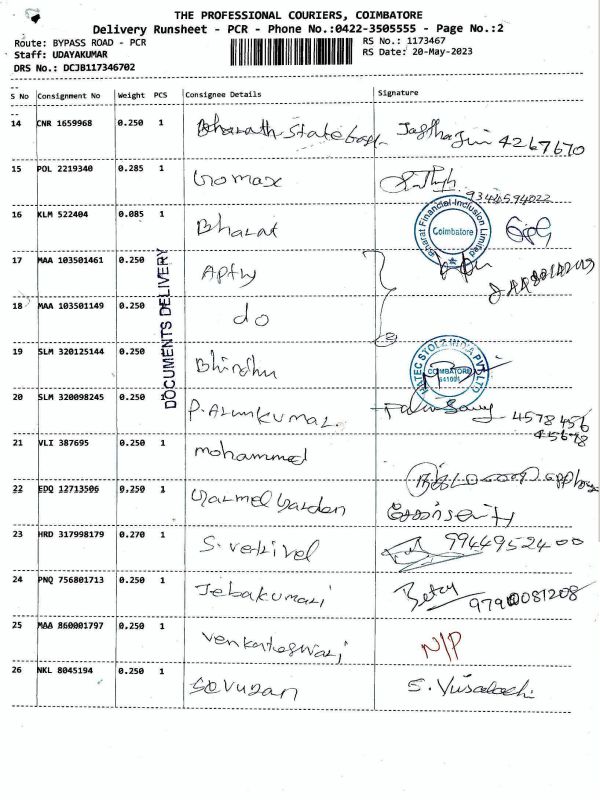 THE PROFESSIONAL COURIERS, COIMBATORE
Delivery Runsheet - PCR - Phone No.:0422-3505555 - Page No.:2
Route: BYPASS ROAD - PCR
RS No.: 1173467
Staff: UDAYAKUMAR
RS Date: 20-May-2023
DRS No.: DCJB117346702
S No Consignment No Weight PCS Consignee Details Signature
14 CNR 1659968 0.250 1 Bharath State 4267670
15 POL 2219340 0.285 1 Gomax
16 KLM 522404 0.085 1 Bharat
Bharat Financial Inclusion Limited
Coimbatore
17 MAA 103501461 0.250
18 MAA 103501149 0.250 do
DOCUMENTS DELIVERY
19 SLM 320125144 0.250 Bhindhu
COIMBATORE
641001
20 SLM 320098245 0.250 P. Arunkumar. 4578456
45678
21 VLI 387695 0.250 1 mohammed
22 EDQ 12713506 0.250 1 Garden
23 HRD 317998179 0.270 1 S. Vetrivel 9944952400
24 PNQ 756801713 0.250 1 Jebakumari 9790081208
25 MAA 860001797 0.250 1 Venkateswari N/P
26 NKL 8045194 0.250 1 S.